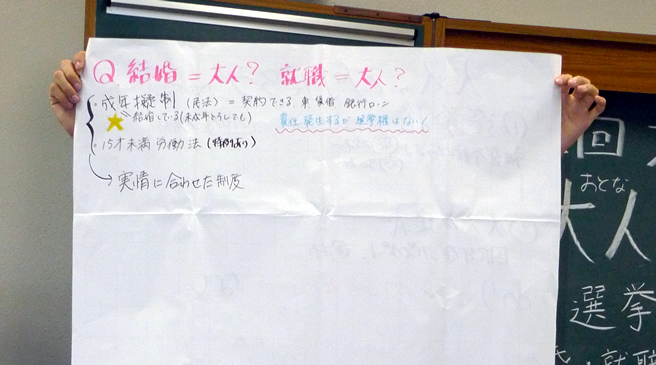 Q. 結婚 = 大人? 就職 = 大人?
・成年擬制 (民法) = 契約できる 車 賃借 銀行ローン
結婚している(未成年どうしでも) 責任発生するが 選挙権はない!
・15才未満 労働法 (特例あり)
→ 実情に合わせた制度
回
おとな
大人
選挙
就職